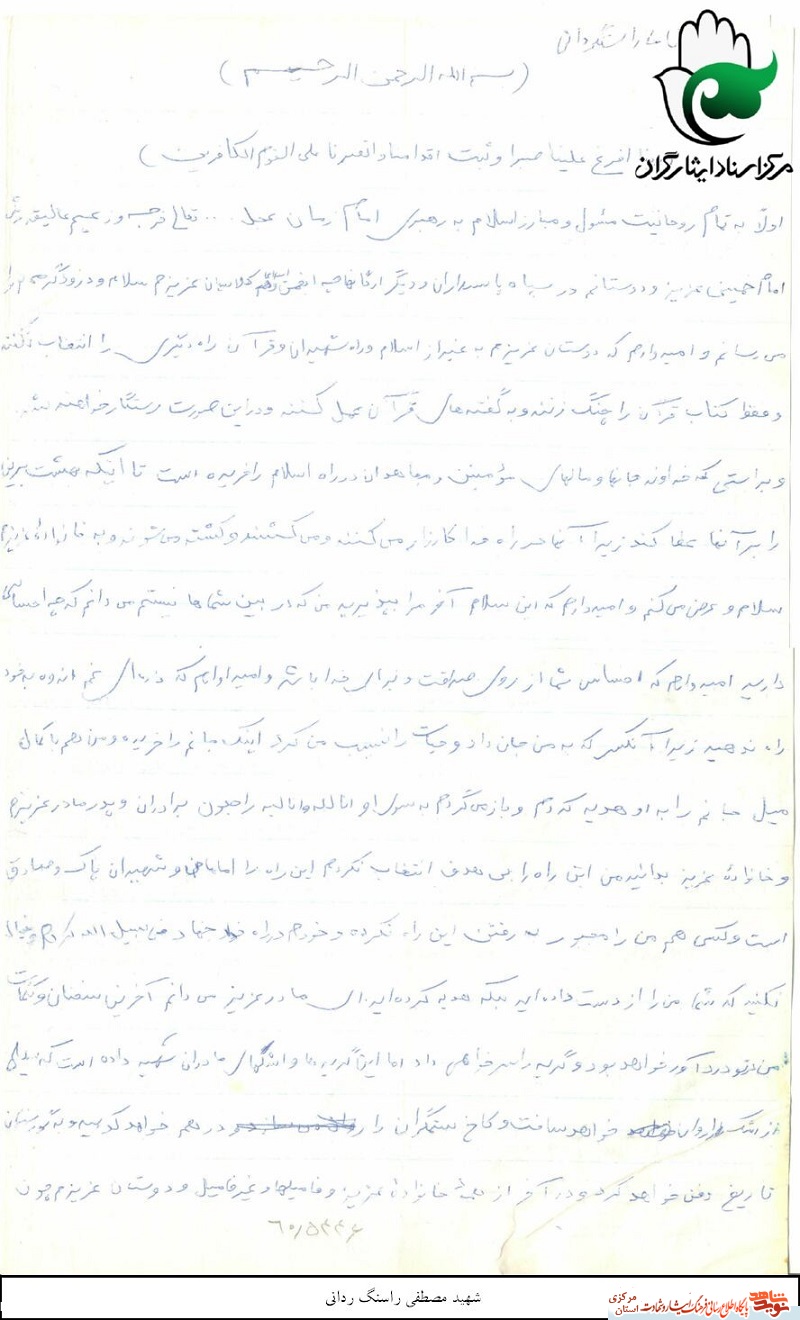 (بسم الله الرحمن الرحیم)
مرکز اسناد ایثارگران
افرغ علینا صبرا و ثبت اقدامنا و انصرنا علی القوم الکافرین)
اولاً به تمام روحانیت مسئول و مبارز اسلام به رهبری امام زمان عجل ... تعالی فرجه و زعیم عالیقدرش
امام خمینی عزیز و دوستانم در سپاه پاسداران و دیگر ارگانها عزیزم سلام و درود گرمم را
می رسانم و امیدوارم که دوستان عزیزم به غیر از اسلام و راه شهیدان و قرآن راه دیگری را انتخاب نکنند
و فقط کتاب قرآن را چنگ زنند و به گفته های قرآن عمل کنند و در این صورت رستگار خواهند شد.
و براستی که خداوند جانها و مالهای مؤمنین و مجاهدان در راه اسلام را خریده است تا اینکه بهشت برین
را بر آنها عطا کند زیرا آنها در راه خدا کارزار می کنند و می کشند و کشته می شوند و به خانواده عزیزم
سلام و عرض می کنم و امیدوارم که این سلام آخر مرا بپذیرید من که در بین شماها نیستم می دانم که چه احساسی
دارید امیدوارم که احساس شما از روی صداقت و برای خدا باشد و امیداوارم که ذره ای غم اندوه به خود
راه ندهید زیرا آنکسی که به من جان داد و حیات را نصیب من کرد اینک جانم را خریده و من هم با کمال
میل جانم را به او هدیه کردم و باز می گردم به سوی او انا لله و انا الیه راجعون برادران و پدر مادر عزیزم
و خانواده عزیز بدانید من این راه را بی هدف انتخاب نکردم این راه را امامان و شهیدان پاک و صادق
است و کسی هم من را مجبور به رفتن این راه نکرده و خودم در راه خدا جهاد فی سبیل الله کردم و خیال
نکنید که شما من را از دست داده اید بلکه هدیه کرده اید. ای مادر عزیز می دانم آخرین سخنان و کلمات
من بتو دردآور خواهد بود و گریه را سر خواهی داد اما این گریه ها و اشکهای مادران شهید داده است که
از اشک خواهد ساخت و کاخ ستمگران را در هم خواهد کوبید و به گورستان
تاریخ دفن خواهد کرد و در آخر از بقیه خانواده عزیز و فامیلها و غیر فامیل و دوستان عزیزم چون
۶۰/۵۴۴۶
شهید مصطفی راسنگ ردانی
نوید شاهد پایگاه اطلاع رسانی فرهنگ ایثار و شهادت استان مرکزی